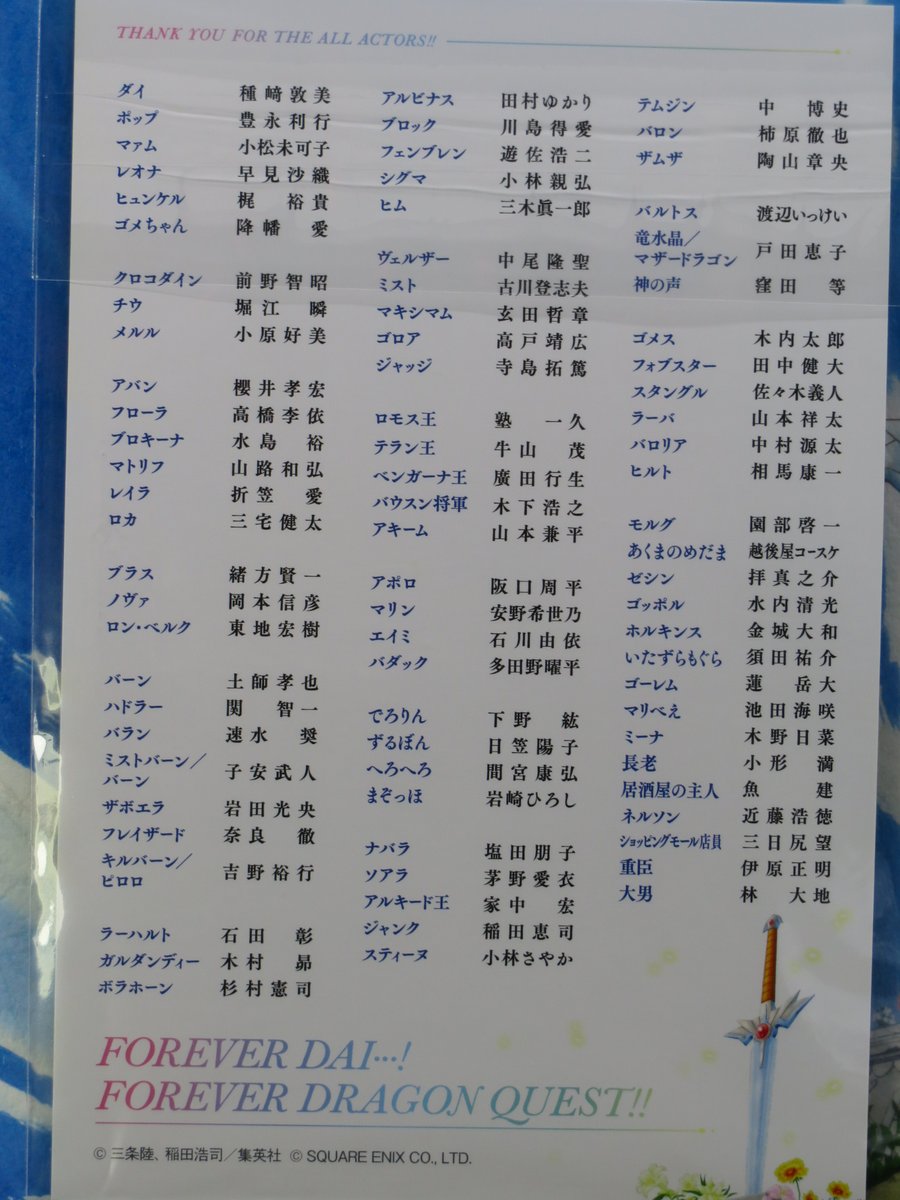 THANK YOU FOR THE ALL ACTORS!!
ダイ 種﨑敦美
ポップ 豊永利行
マァム 小松未可子
レオナ 早見沙織
ヒュンケル 梶 裕貴
ゴメちゃん 降幡 愛
クロコダイン 前野智昭
チウ 堀江 瞬
メルル 小原好美
アバン 櫻井孝宏
フローラ 高橋李依
ブロキーナ 水島 裕
マトリフ 山路和弘
レイラ 折笠 愛
ロカ 三宅健太
ブラス 緒方賢一
ノヴァ 岡本信彦
ロン・ベルク 東地宏樹
バーン 土師孝也
ハドラー 関 智一
バラン 速水 奨
ミストバーン/
バーン 子安武人
ザボエラ 岩田光央
フレイザード 奈良 徹
キルバーン/
ピロロ 吉野裕行
ラーハルト 石田 彰
ガルダンディー 木村 昴
ボラホーン 杉村憲司
アルビナス 田村ゆかり
ブロック 川島得愛
フェンブレン 遊佐浩二
シグマ 小林親弘
ヒム 三木眞一郎
ヴェルザー 中尾隆聖
ミスト 古川登志夫
マキシマム 玄田哲章
ゴロア 高戸靖広
ジャッジ 寺島拓篤
ロモス王 塾 一久
テラン王 牛山 茂
ベンガーナ王 廣田行生
バウスン将軍 木下浩之
アキーム 山本兼平
アポロ 阪口周平
マリン 安野希世乃
エイミ 石川由依
バダック 多田野曜平
でろりん 下野 紘
ずるぼん 日笠陽子
へろへろ 間宮康弘
まぞっほ 岩崎ひろし
ナバラ 塩田朋子
ソアラ 茅野愛衣
アルキード王 家中 宏
ジャンク 稲田恵司
スティーヌ 小林さやか
テムジン 中 博史
バロン 柿原徹也
ザムザ 陶山章央
バルトス 渡辺いっけい
竜水晶/
マザードラゴン 戸田恵子
神の声 窪田 等
ゴメス 木内太郎
フォブスター 田中健大
スタングル 佐々木義人
ラーバ 山本祥太
バロリア 中村源太
ヒルト 相馬康一
モルグ 園部啓一
あくまのめだま 越後屋コースケ
ゼシン 拝真之介
ゴッポル 水内清光
ホルキンス 金城大和
いたずらもぐら 須田祐介
ゴーレム 蓮 岳大
マリべえ 池田海咲
ミーナ 木野日菜
長老 小形 満
居酒屋の主人 魚 建
ネルソン 近藤浩徳
ショッピングモール店員 三日尻望
重臣 伊原正明
大男 林 大地
FOREVER DAI…!
FOREVER DRAGON QUEST!!
© 三条陸、稲田浩司/集英社 © SQUARE ENIX CO., LTD.